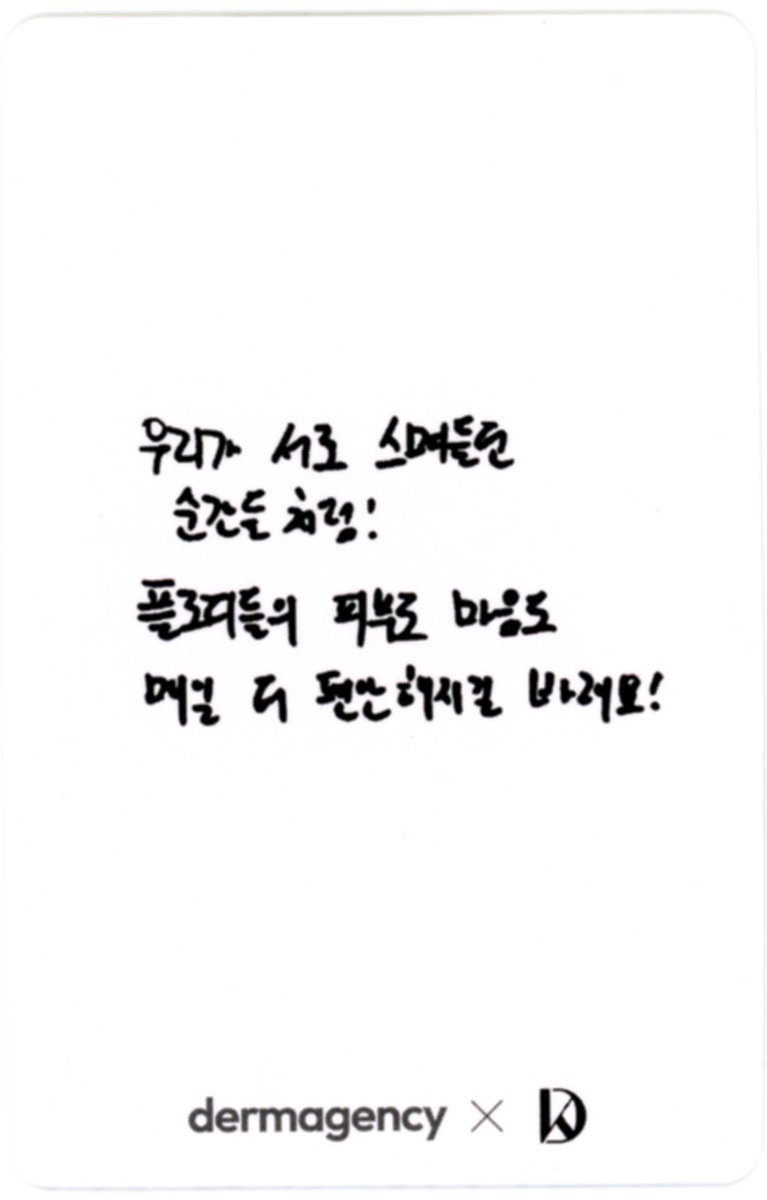 우리가 서로 스며들던
순간들 처럼!
플로디들의 피부도 마음도
매일 더 편안해지길 바래요!
dermagency × KD